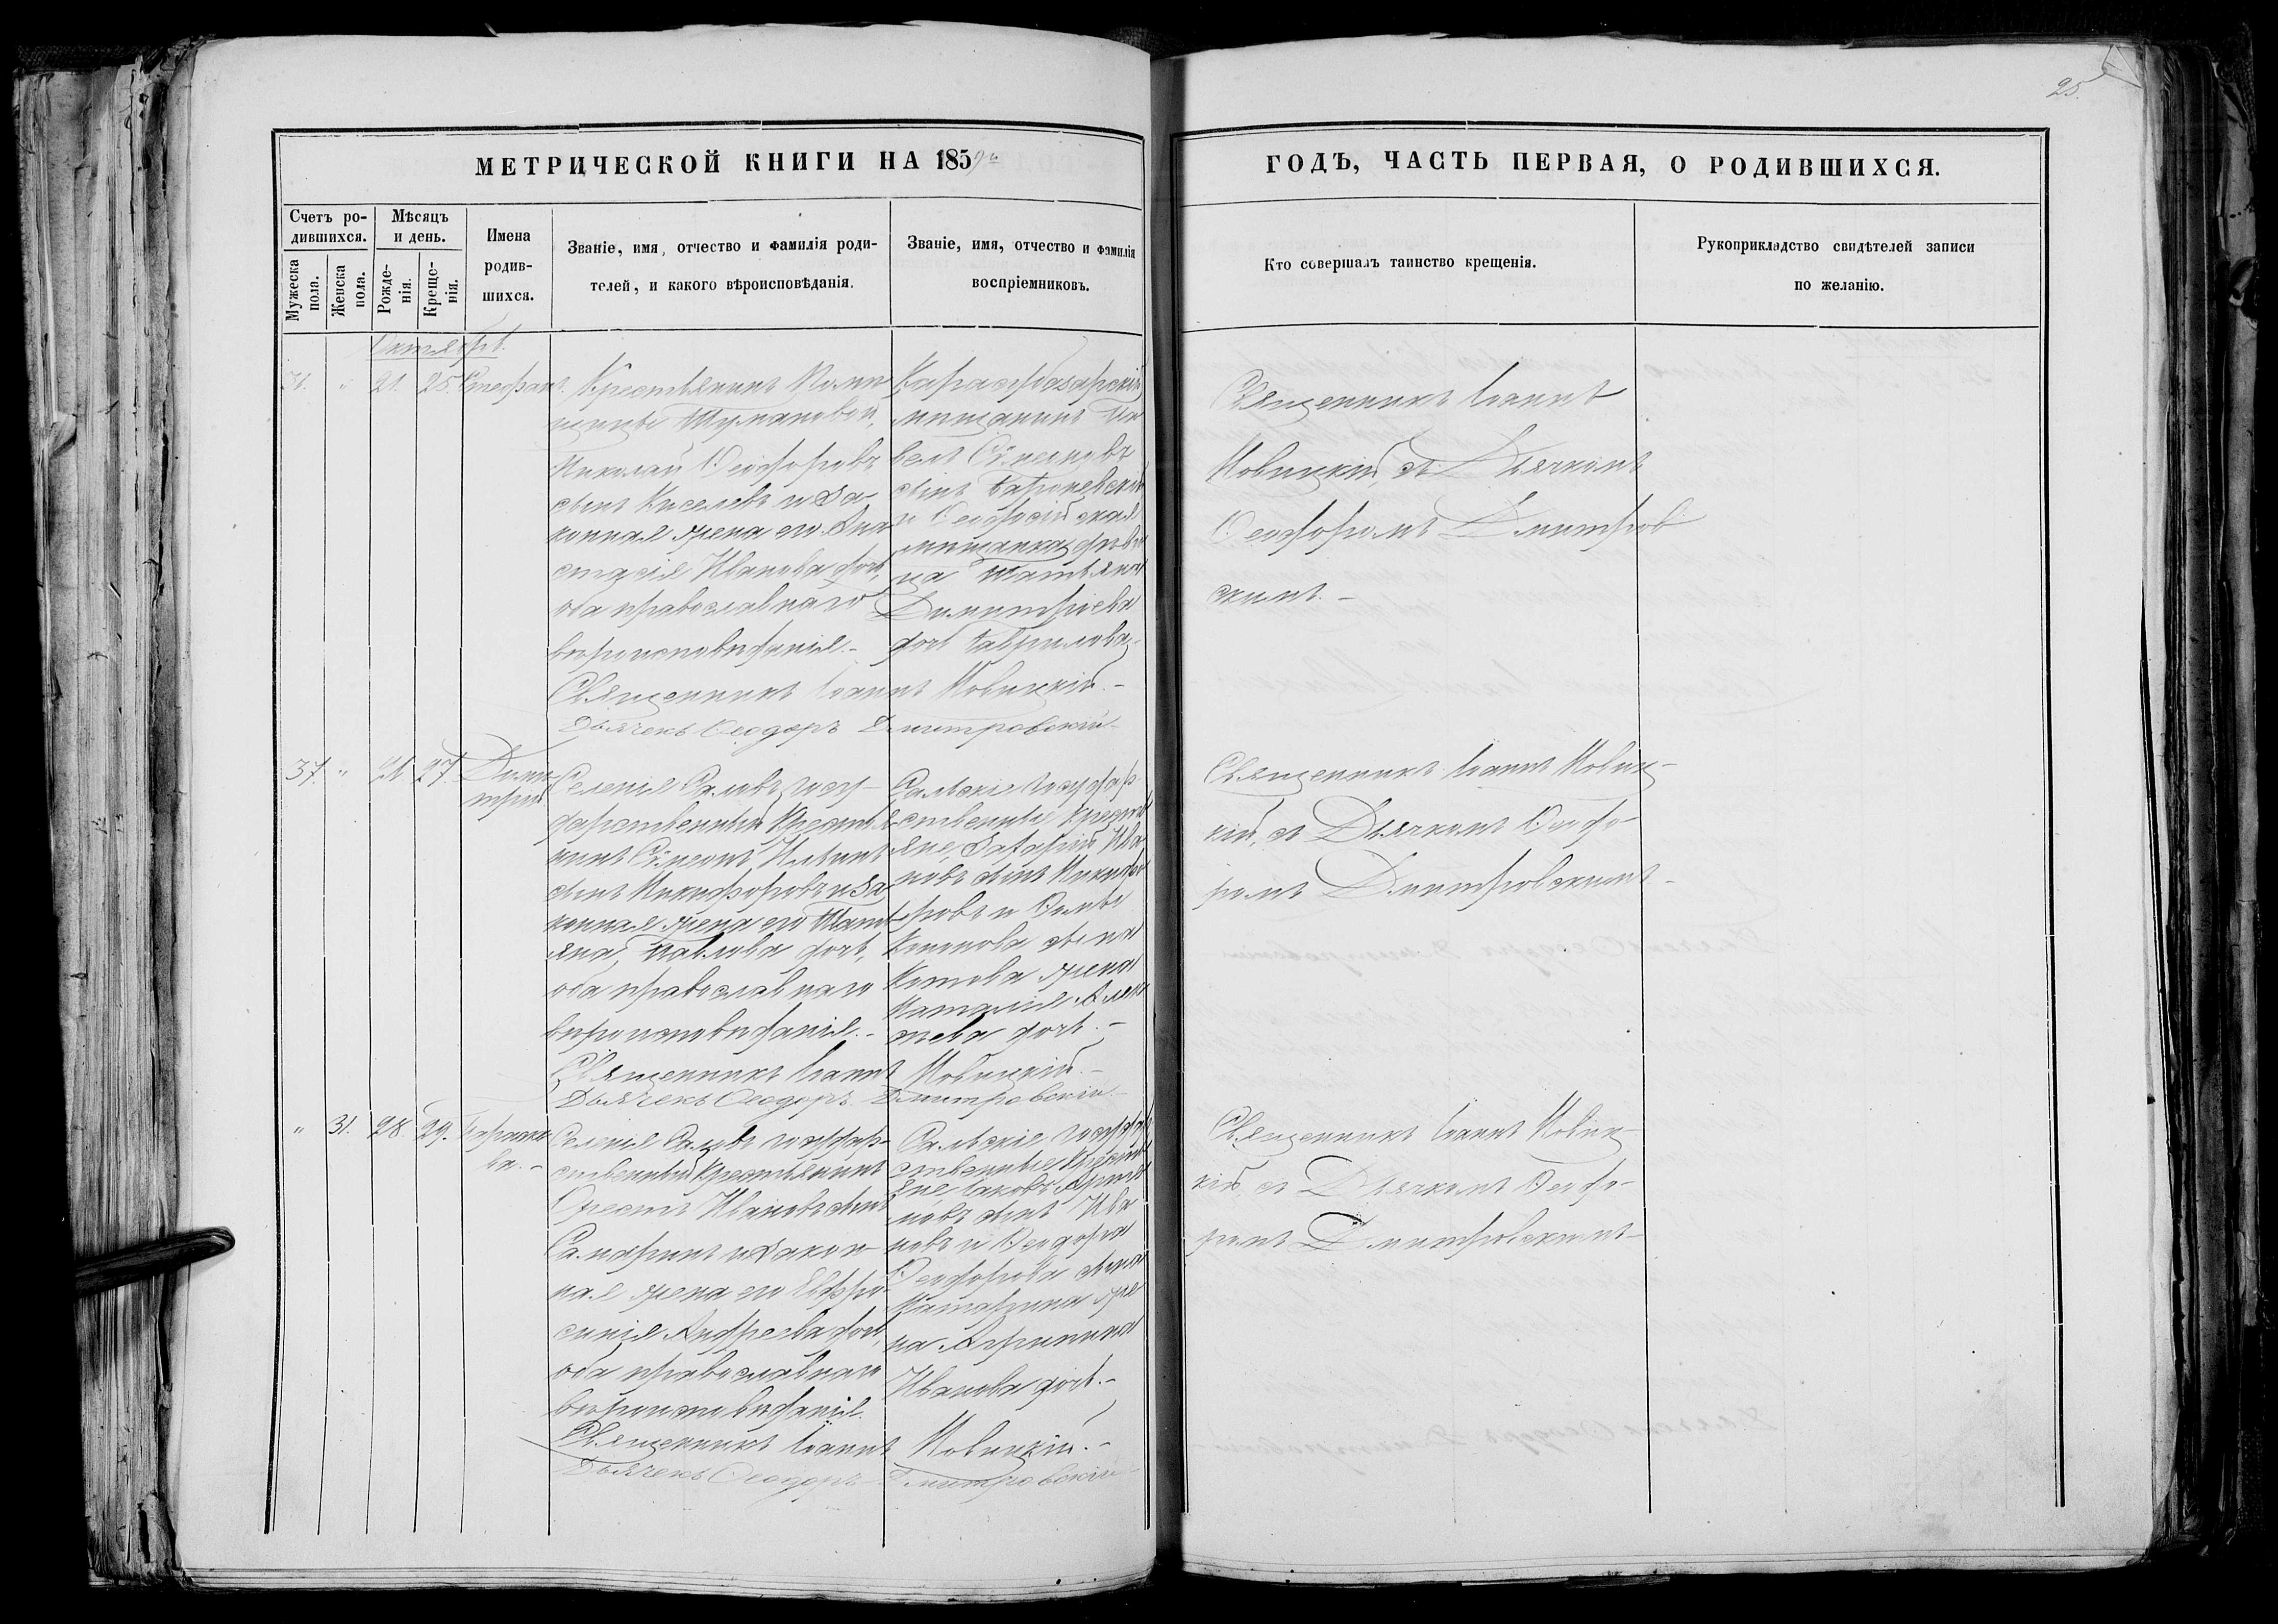 25.
МЕТРИЧЕСКОЙ КНИГИ НА 1859й
ГОДЪ, ЧАСТЬ ПЕРВАЯ, О РОДИВШИХСЯ.
Счетъ ро-
дившихся.
Мужеска
пола.
Женска
пола.
Мѣсяцъ
и день.
Рожде-
нія.
Креще-
нія.
Имена
родив-
шихся.
Званіе, имя, отчество и фамилія роди-
телей, и какого вѣроисповѣданія.
Званіе, имя, отчество и фамилія
воспріемниковъ.
Кто совершалъ таинство крещенія.
Рукоприкладство свидѣтелей записи
по желанію.
Октябрь.
" 21. 25. Стефанъ.
Крестьянинъ Поми
щицы Шумановой,
Николай Ѳеодоровъ
сынъ Киселевъ и за-
конная жена его Ана
стасія Иванова дочь,
оба православнаго
вѣроисповѣданія.-
Карасубазарскій
мищанинъ Па
велъ Сѵмеоновъ
сынъ
и Ѳеодосійская
мищанка, дѣви
ца Татьяна
Димитріева
дочь Гаврилова.
Священникъ Іоаннъ Новицкій.-
Дьячекъ Ѳеодоръ Дмитровскій
Священникъ Іоаннъ
Новицкій съ Дьячкомъ
Ѳеодоромъ Дмитров
скимъ.-
37. " 21 27. Дими
трій
Селенія Салы, госу-
дарственный Крестья
нинъ Сѵмеонъ
сынъ Никифоровъ и за
конная жена его Тать
яна, Павлова дочь,
оба православнаго
вѣроисповѣданія.-
Сальскіе Государ
ственные крестья
яне, Захарій Ива
новъ сынъ Никифо
ровъ и
сына
жена
Наталія Алек
дочь.-
Священникъ Іоаннъ Новицкій.-
Дьячекъ Ѳеодоръ Дмитровскій
Священникъ Іоаннъ Новиц-
кій, съ Дьячкомъ Ѳеодо-
ромъ Дмитровскимъ-
" 31. 28. 29. Параске
ва.-
Селенія Салы государ-
ственный Крестьянинъ
Орестъ Ивановъ сынъ
и закон-
ная жена его Евфро-
синія Андреева дочь,
оба православнаго
вѣроисповѣданія.
Сальскіе Государ
ственные Кресть
яне Іаковъ
новъ сынъ Ива
новъ и Ѳеодора
Ѳеодорова сына
же
на
Иванова дочь.-
Священникъ Іоаннъ Новицкій.-
Дьячекъ Ѳеодоръ Дмитровскій
Священникъ Іоаннъ Новиц-
кій, съ Дьячкомъ Ѳеодо-
ромъ Дмитровскимъ-